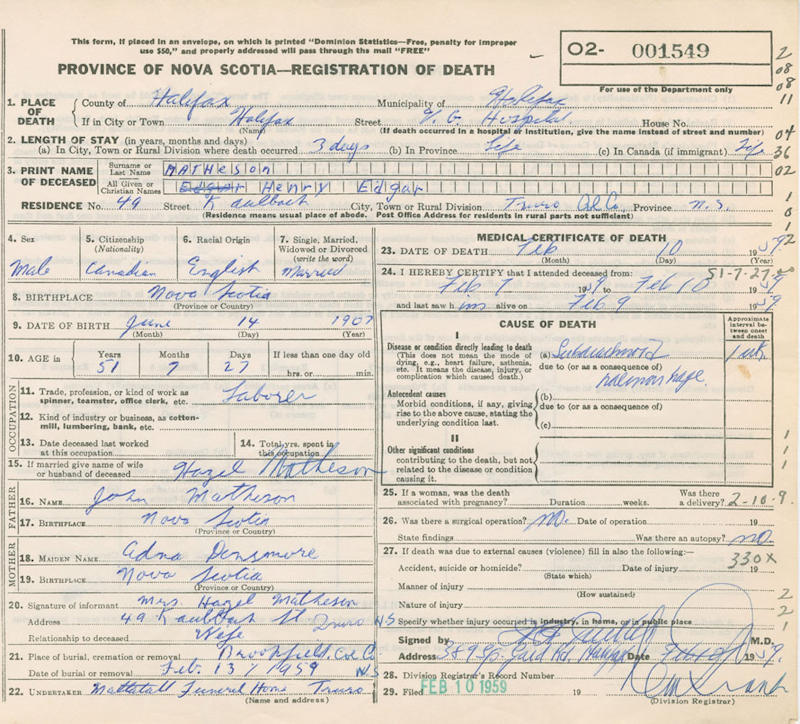 This form, if placed in an envelope, on which is printed "Dominion Statistics—Free, penalty for improper
use $50," and properly addressed will pass through the mail "FREE"
O2- 001549
PROVINCE OF NOVA SCOTIA—REGISTRATION OF DEATH
For use of the Department only
1. PLACE OF DEATH
County of Halifax Municipality of Halifax
If in City or Town Halifax Street V. G. Hospital House No.
(Name) (If death occurred in a hospital or institution, give the name instead of street and number)
2. LENGTH OF STAY (in years, months and days)
(a) In City, Town or Rural Division where death occurred 3 days (b) In Province Life (c) In Canada (if immigrant) Life
3. PRINT NAME OF DECEASED
Surname or Last Name MATHESON
All Given or Christian Names Edgar Henry Edgar
RESIDENCE No. 49 Street Kaulbach City, Town or Rural Division Truro Col. Co. Province N.S.
(Residence means usual place of abode. Post Office Address for residents in rural parts not sufficient)
4. Sex
Male
5. Citizenship
(Nationality)
Canadian
6. Racial Origin
English
7. Single, Married,
Widowed or Divorced
(write the word)
Married
8. BIRTHPLACE Nova Scotia
(Province or Country)
9. DATE OF BIRTH June 14 1907
(Month) (Day) (Year)
10. AGE in
Years Months Days If less than one day old
51 7 27 hrs. or min.
OCCUPATION
11. Trade, profession, or kind of work as
spinner, teamster, office clerk, etc. Laborer
12. Kind of industry or business, as cotton-
mill, lumbering, bank, etc.
13. Date deceased last worked
at this occupation
14. Total yrs. spent in
this occupation
15. If married give name of wife
or husband of deceased Hazel Matheson
FATHER
16. NAME John Matheson
17. BIRTHPLACE Nova Scotia
(Province or Country)
MOTHER
18. MAIDEN NAME Edna Densmore
19. BIRTHPLACE Nova Scotia
(Province or Country)
20. Signature of informant Mrs. Hazel Matheson
Address 49 Kaulbach St Truro N.S
Relationship to deceased Wife
21. Place of burial, cremation or removal Brookfield, Col. Co
Date of burial or removal Feb. 13 / 1959 N.S
22. UNDERTAKER Mattatall Funeral Home Truro
(Name and address)
MEDICAL CERTIFICATE OF DEATH
23. DATE OF DEATH Feb 10 1959
(Month) (Day) (Year)
24. I HEREBY CERTIFY that I attended deceased from: 51-7-27
Feb 7 1959 to Feb 10 1959
and last saw him alive on Feb 9 1959
CAUSE OF DEATH
Approximate
interval be-
tween onset
and death
I
Disease or condition directly leading to death
(This does not mean the mode of
dying, e.g., heart failure, asthenia,
etc. It means the disease, injury, or
complication which caused death.)
(a) Subarachnoid 1 wk
due to (or as a consequence of)
haemorrhage.
Antecedent causes
Morbid conditions, if any, giving
rise to the above cause, stating the
underlying condition last.
(b)
due to (or as a consequence of)
(c)
II
Other significant conditions
contributing to the death, but not
related to the disease or condition
causing it.
25. If a woman, was the death
associated with pregnancy? Duration weeks. Was there
a delivery? 2-10-9.
26. Was there a surgical operation? no. Date of operation 19
State findings Was there an autopsy? no.
27. If death was due to external causes (violence) fill in also the following:— 330X
Accident, suicide or homicide? Date of injury 19
(State which)
Manner of injury
(How sustained)
Nature of injury
Specify whether injury occurred in industry, in home, or in public place
Signed by M.D.
Address Halifax Date 1959.
28. Division Registrar's Record Number
29. Filed FEB 10 1959 19
(Division Registrar)